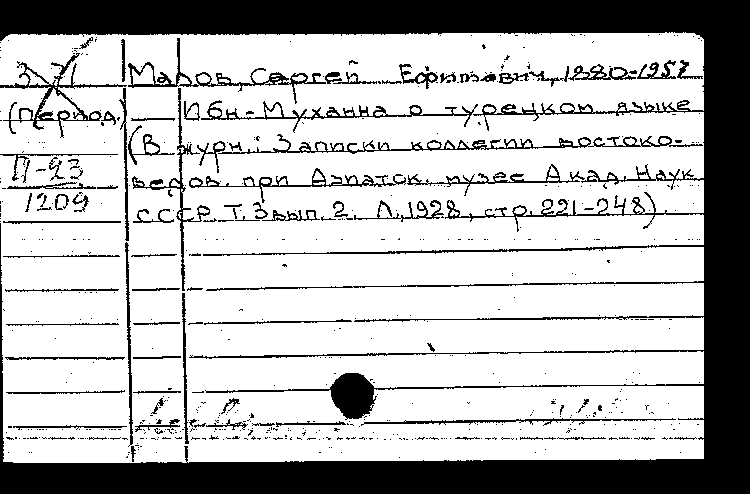 3 71 Малов, Сергей Ефимович, 1880-1957
(Период.) Ибн-Муханна о турецком языке
(В журн.: Записки коллегии востоко-
П-23 ведов. при Азиатск. музее Акад. Наук
1209 СССР. Т. 3 вып. 2. Л., 1928, стр. 221-248).